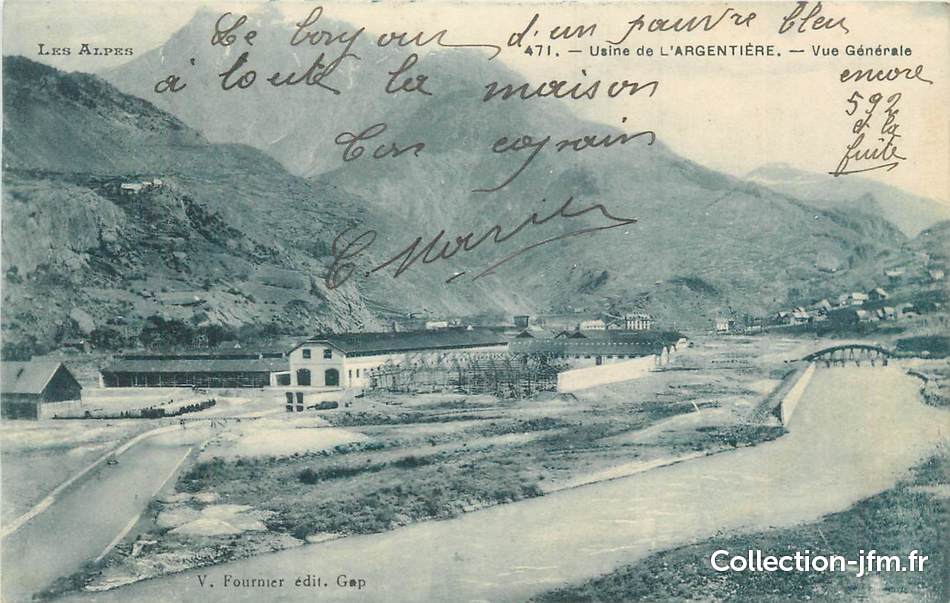 Les Alpes
471. – Usine de L'ARGENTIÈRE. – Vue Générale
Le bonjour d'un pauvre bleu
à toute la maison
Ton copain
C Marin
encore
592
et la
fuite
V. Fournier édit. Gap
Collection-jfm.fr